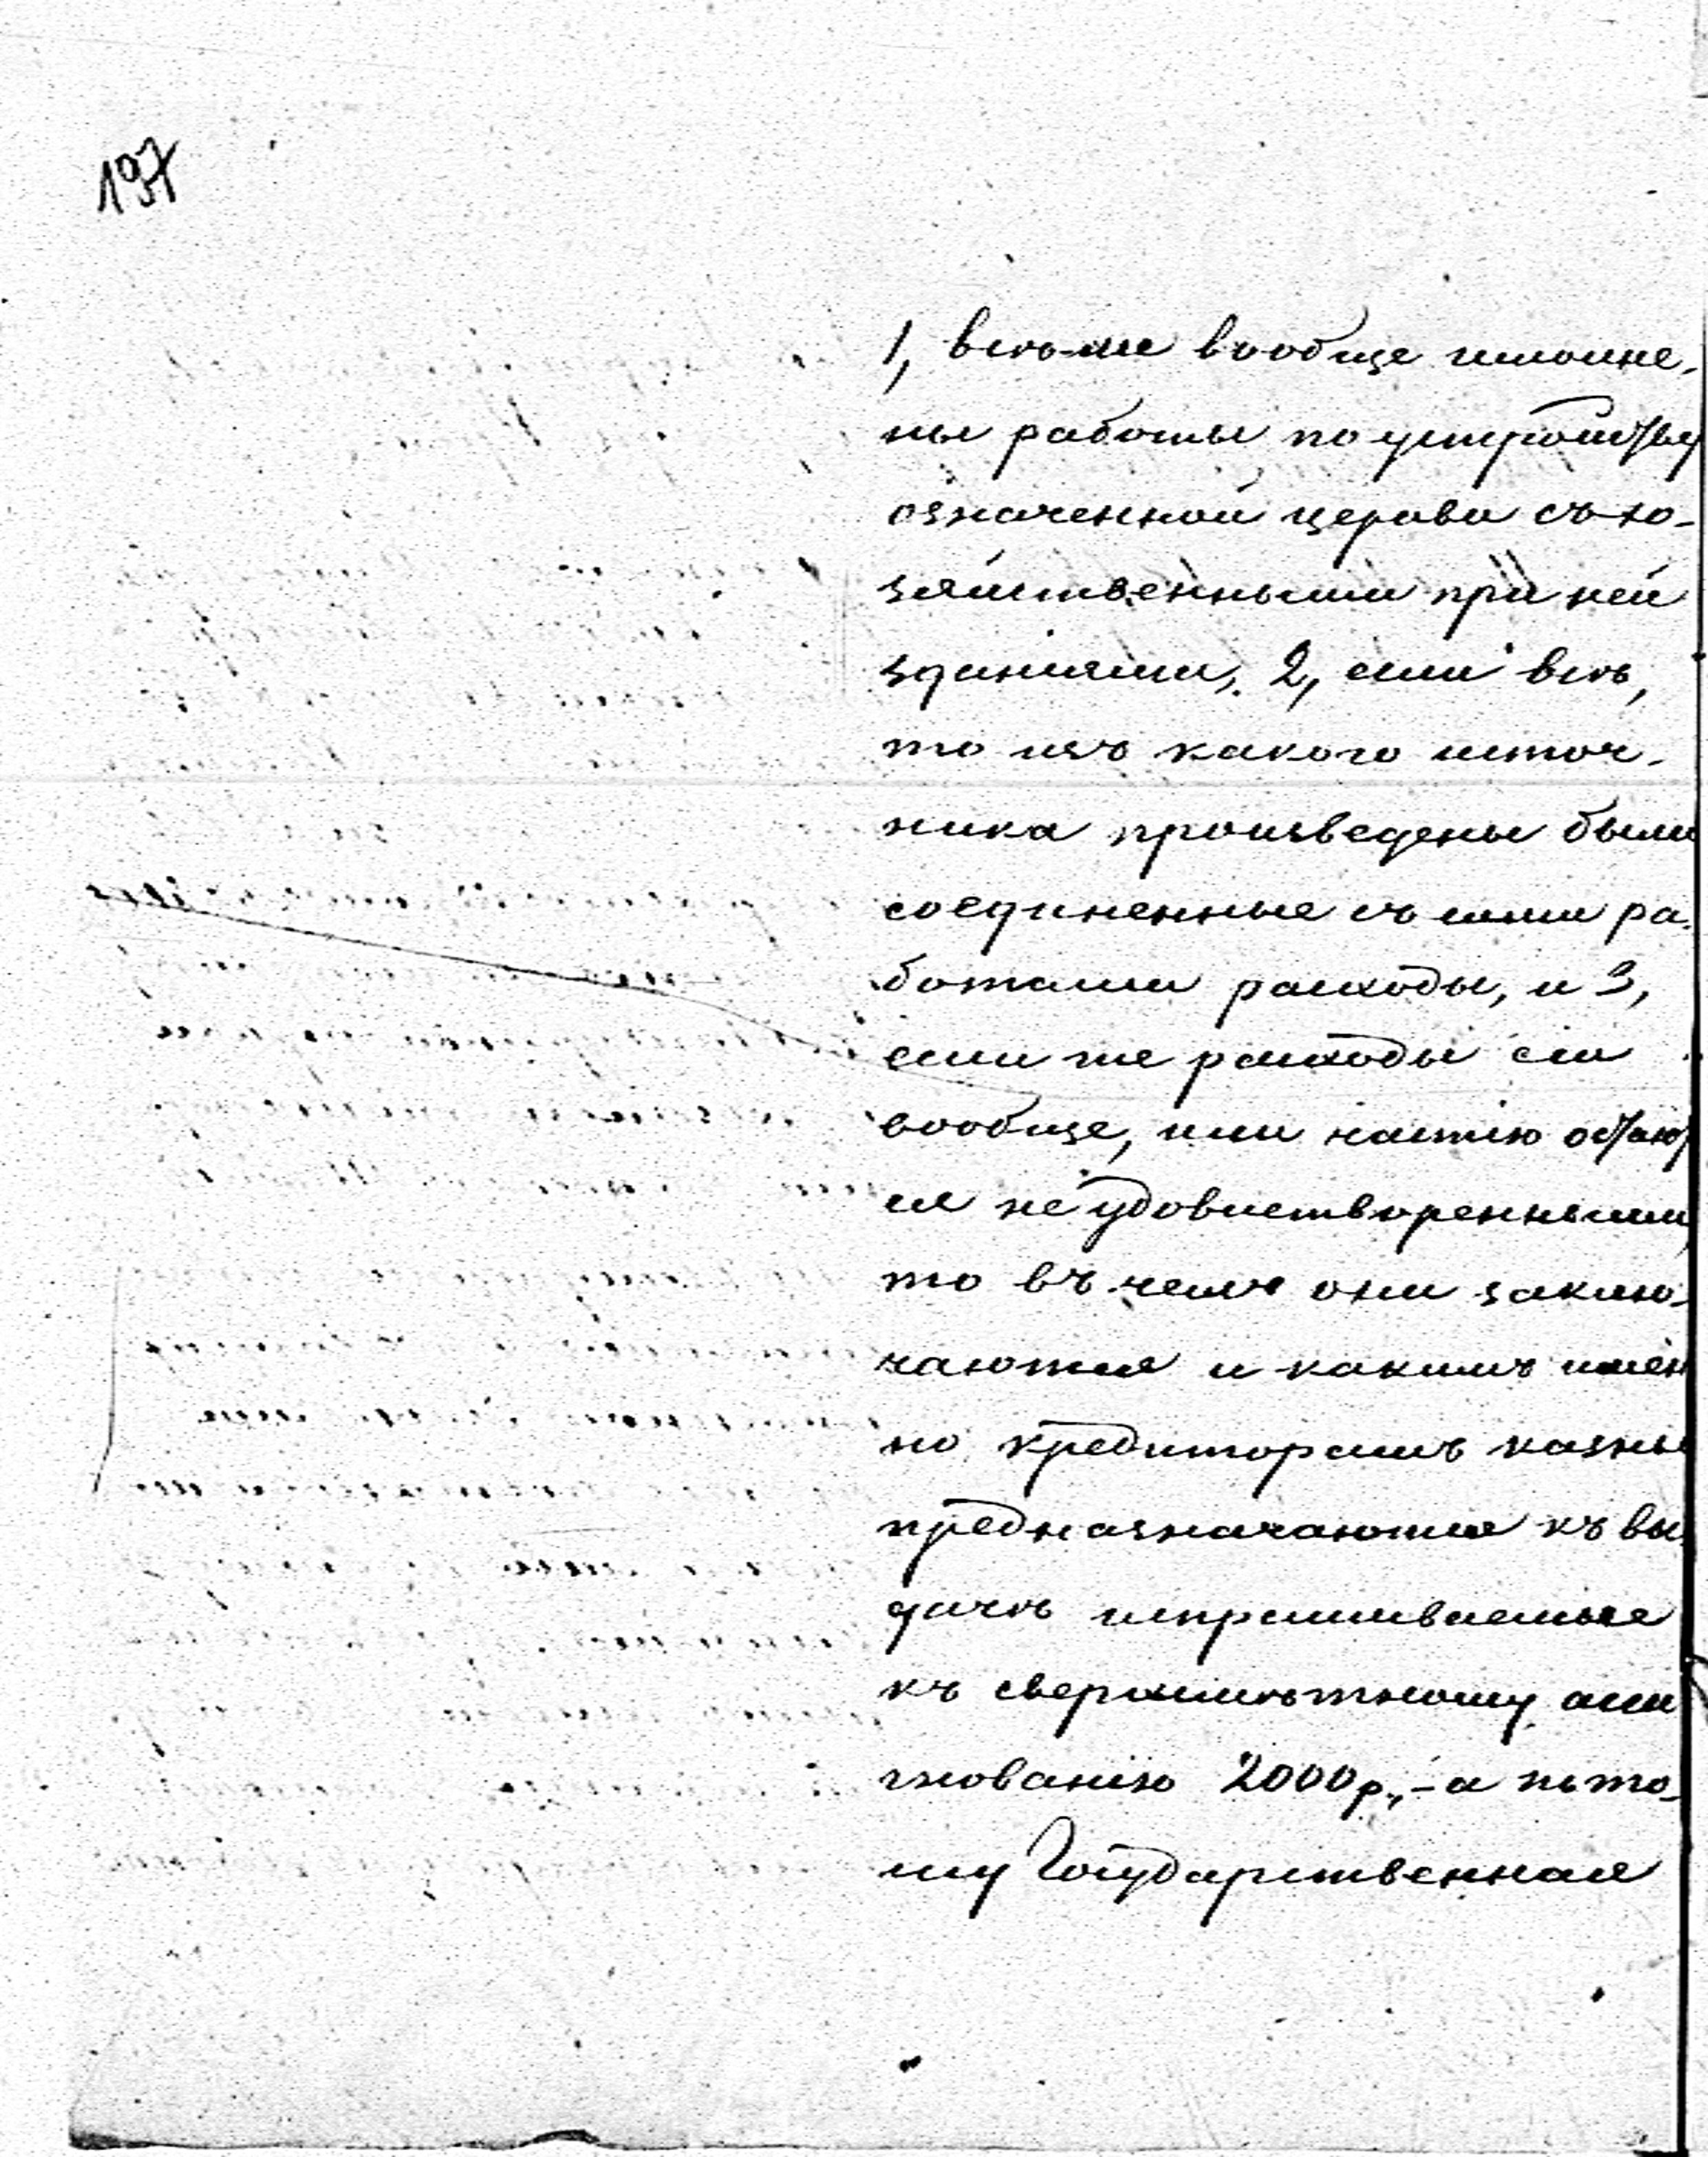 197
1, всѣ-ли вообще исполне-
ны работы по устройству
означенной церкви съ хо-
зяйственными при ней
зданіями, 2, если всѣ,
то изъ какого источ-
ника произведены были
соединенные съ сими ра-
ботами расходы, и 3,
если же расходы сіи
вообще, или частію остают
ся не удовлетворенными,
то въ чемъ они заклю-
чаются и какимъ имен
но кредиторамъ казны
предназначаются къ вы-
дачѣ испрашиваемые
къ сверхсмѣтному асси
гнованію 2000 р., - а пото-
му Государственная